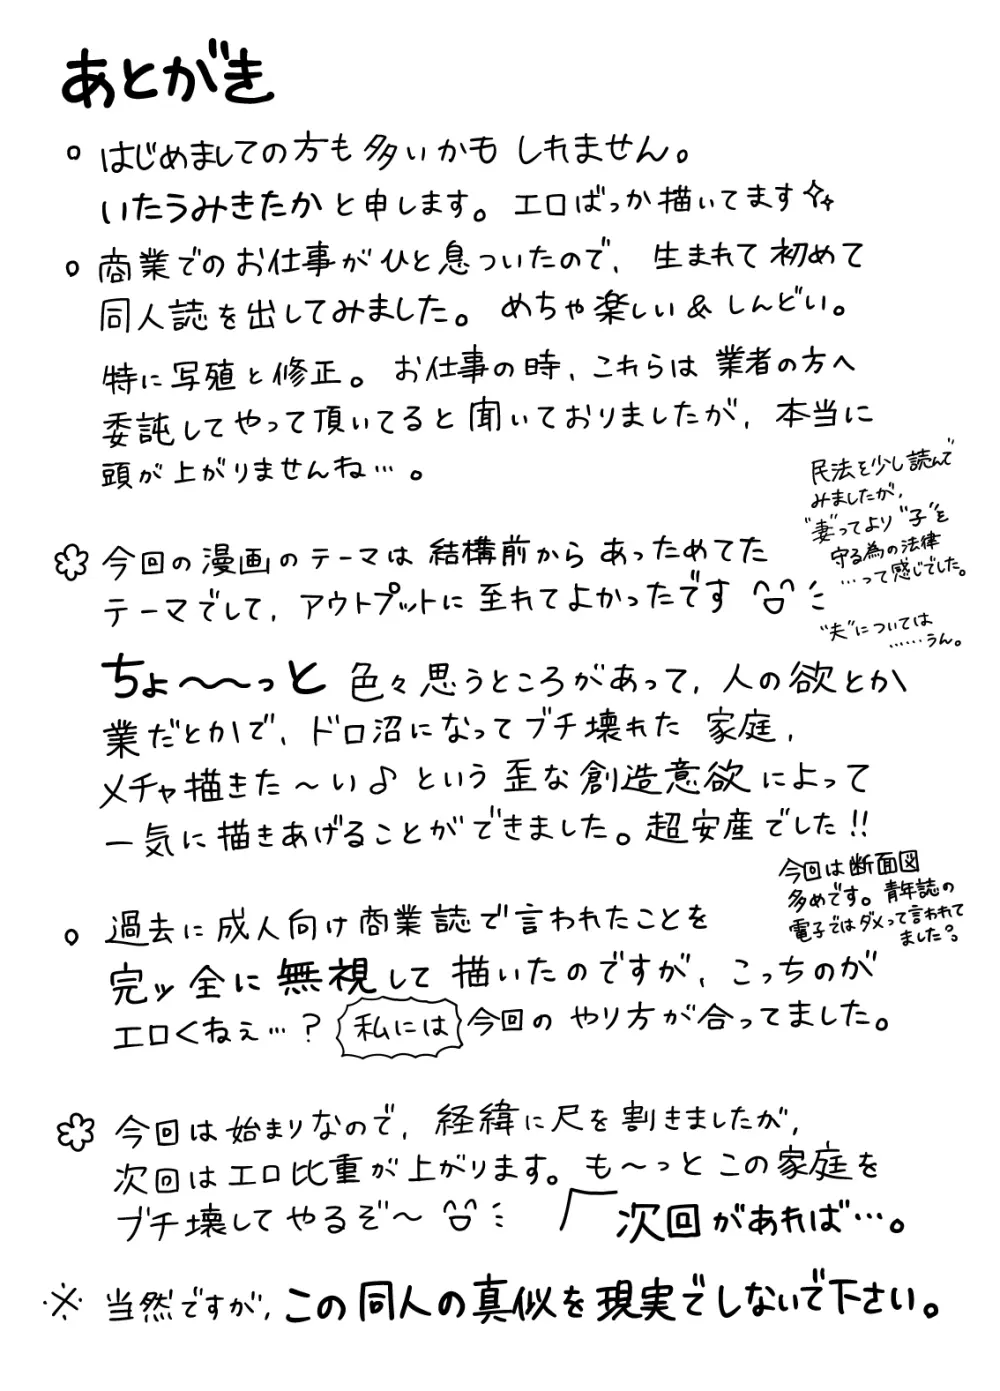 あとがき
○ はじめましての方も多いかもしれません。
いたうみきたかと申します。エロばっか描いてます
○ 商業でのお仕事がひと息ついたので、生まれて初めて
同人誌を出してみました。めちゃ楽しい&しんどい。
特に写殖と修正。お仕事の時、これらは業者の方へ
委託してやって頂いてると聞いておりましたが、本当に
頭が上がりませんね…。
民法を少し読んで
みましたが、
"妻"ってより"子"を
守る為の法律
…って感じでした。
"夫"については
……うん。
今回の漫画のテーマは結構前からあっためてた
テーマでして、アウトプットに至れてよかったです
ちょ〜〜っと色々思うところがあって、人の欲とか
業だとかで、ドロ沼になってブチ壊れた家庭、
メチャ描きた〜い♪という歪な創造意欲によって
一気に描きあげることができました。超安産でした!!
今回は断面図
多めです。青年誌の
電子ではダメって言われて
ました。
○ 過去に成人向け商業誌で言われたことを
完ッ全に無視して描いたのですが、こっちのが
エロくねぇ…?私には今回のやり方が合ってました。
今回は始まりなので、経緯に尺を割きましたが、
次回はエロ比重が上がります。も〜っとこの家庭を
ブチ壊してやるぞ〜
次回があれば…。
※ 当然ですが、この同人の真似を現実でしないで下さい。